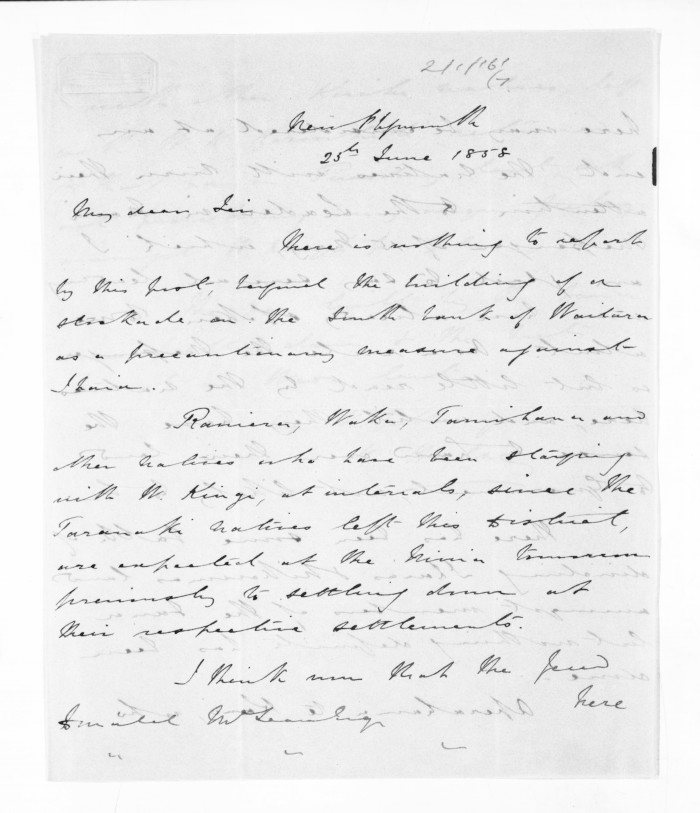 New Plymouth
25th June 1858
My dear Sir
There is nothing to report
by this post, beyond the building of a
stockade on the South bank of Waitara
as a precautionary measure against
Ihaia.
Raniera, Waka, Tamihana and
other natives who have been staying
with W. Kingi, at intervals, since the
Taranaki natives left this District,
are expected at the Ninia tomorrow
previously to settling down at
their respective settlements.
I think now that the feud
here
Donald McLean Esq